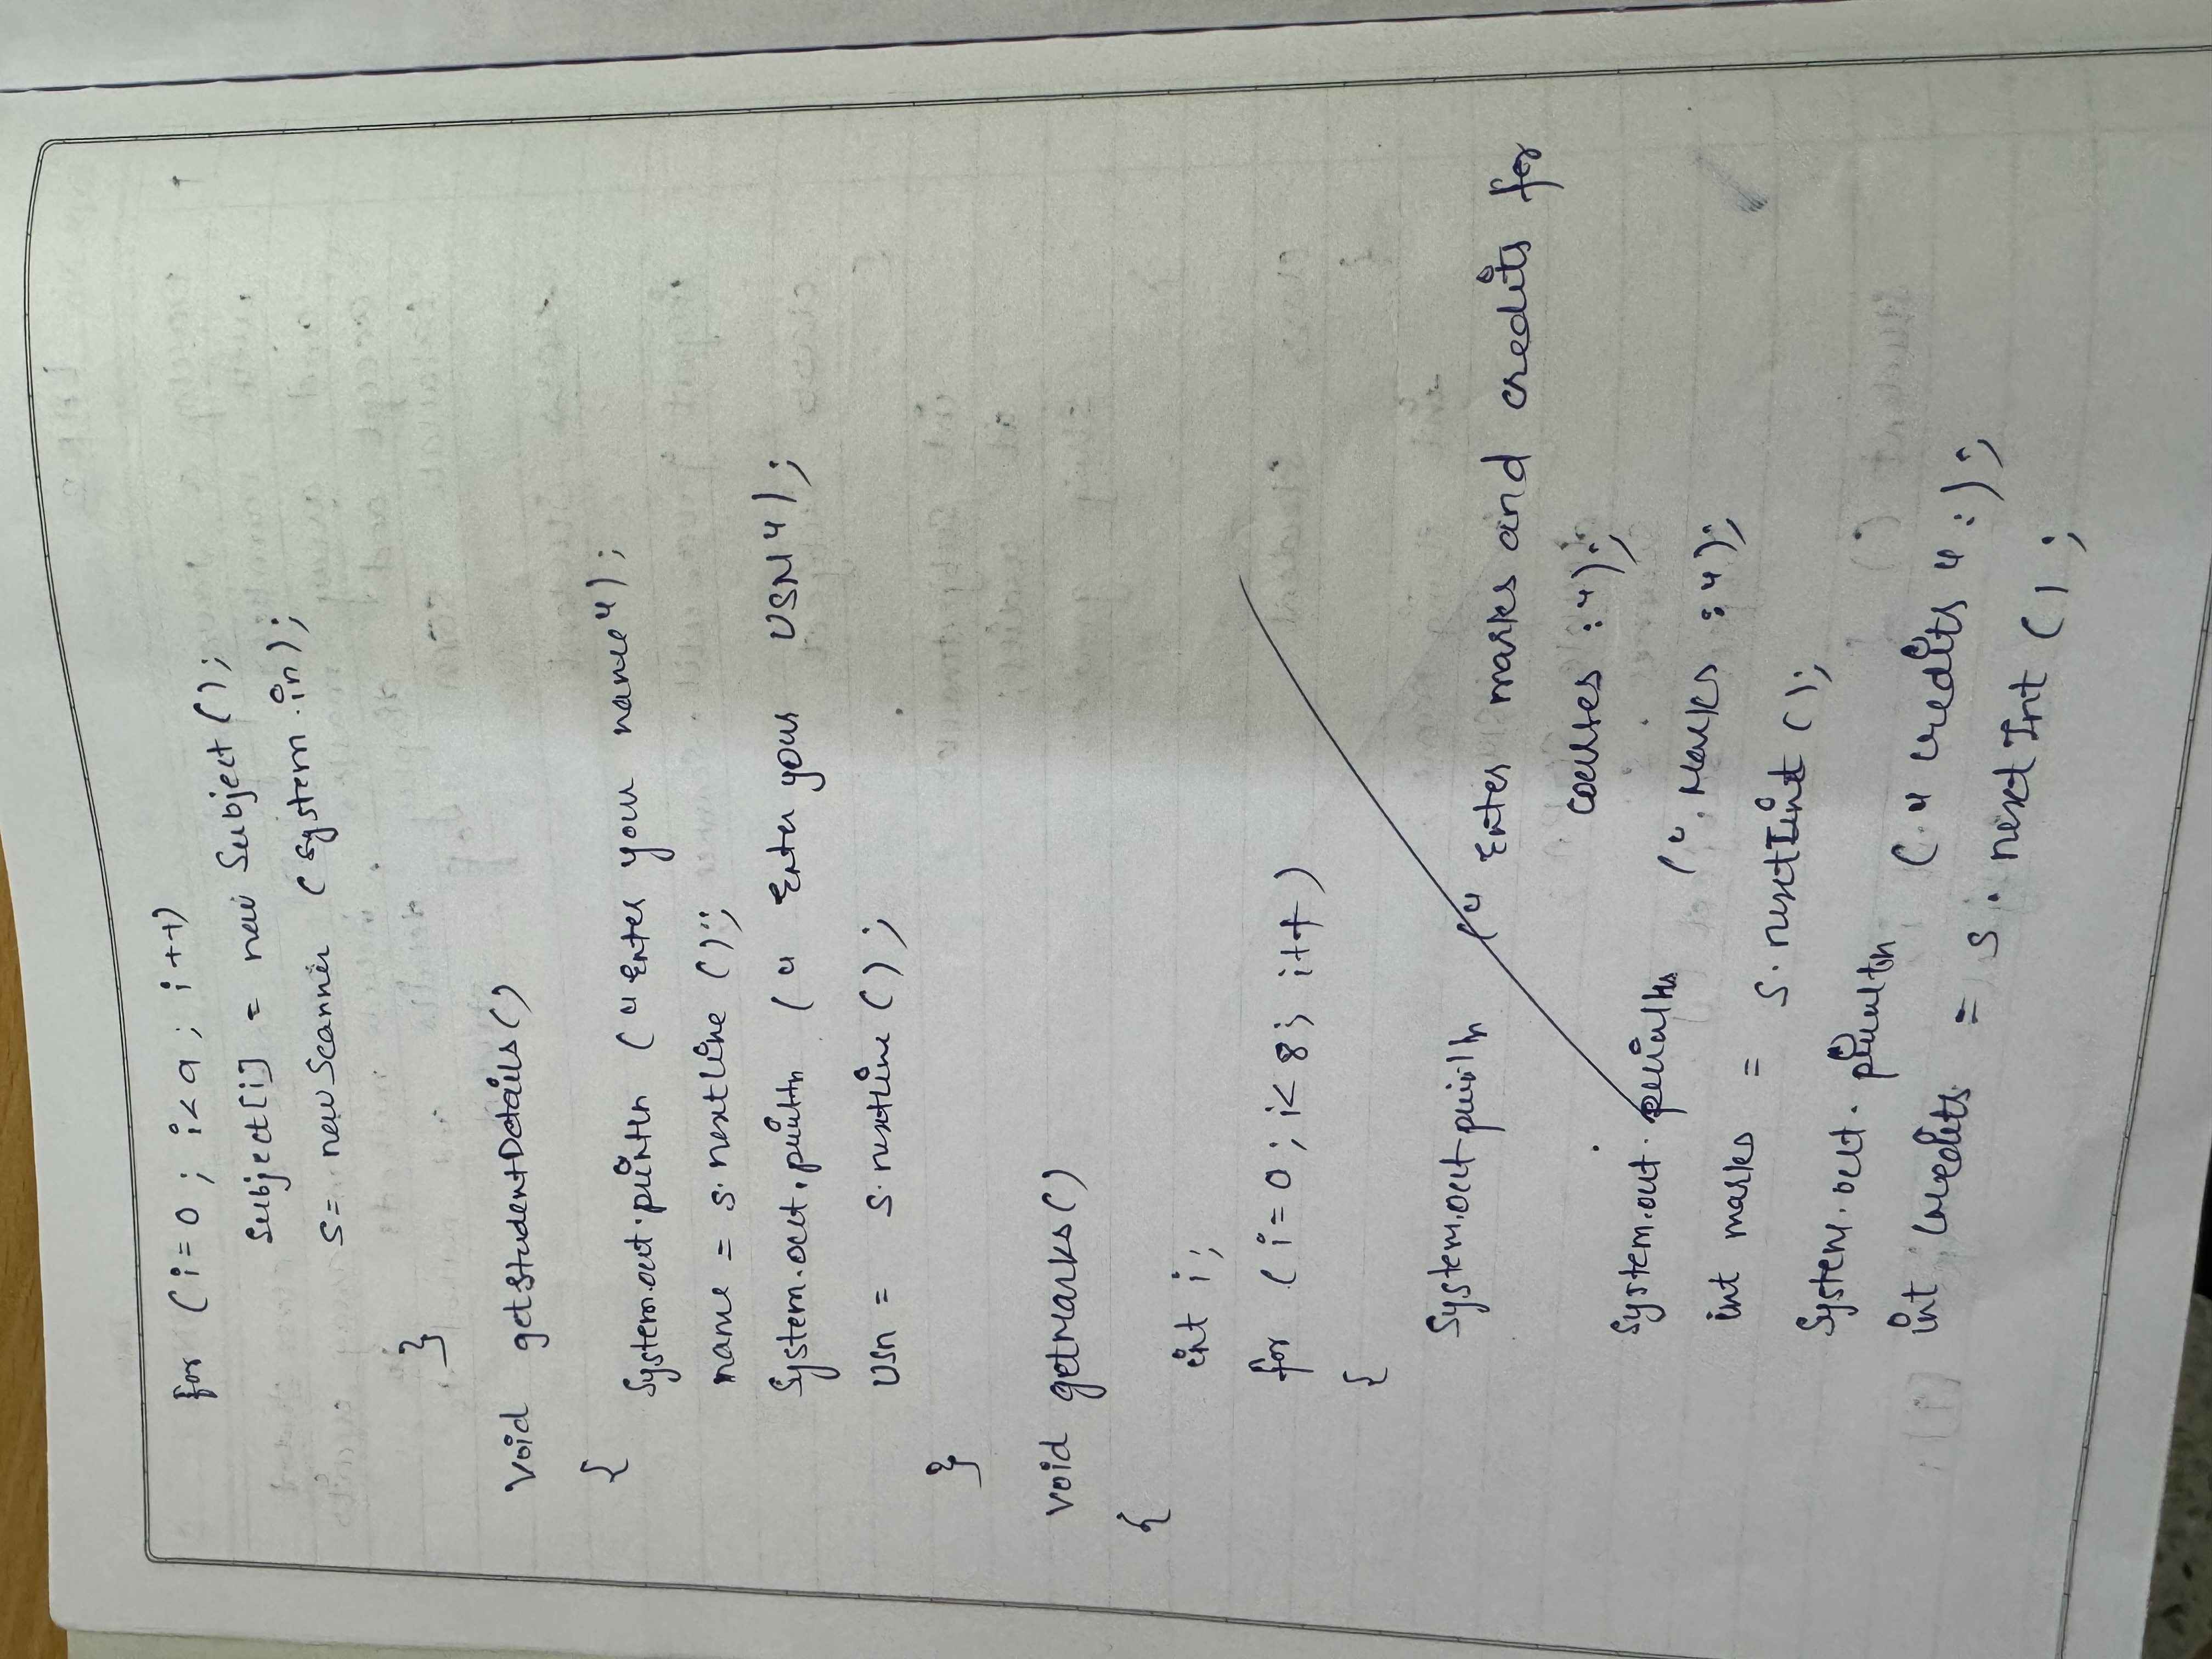 for (i=0 ; i<9 ; i++)
Subject[i] = new Subject();
s= new Scanner (System.in);
}
Void getStudentDetails()
{
System.out.println ("Enter your name");
name = s.nextline ();
System.out.println (" Enter your USN");
USn = s.nextline ();
}
Void getMarks()
{
int i;
for (i=0; i<8; i++)
{
System.out println (" Enter marks and credits for
courses :");
System.out. println (". Marks :");
int marks = s.nextInt ();
System.out. println (." credits ":);
int credits = s. nextInt ();